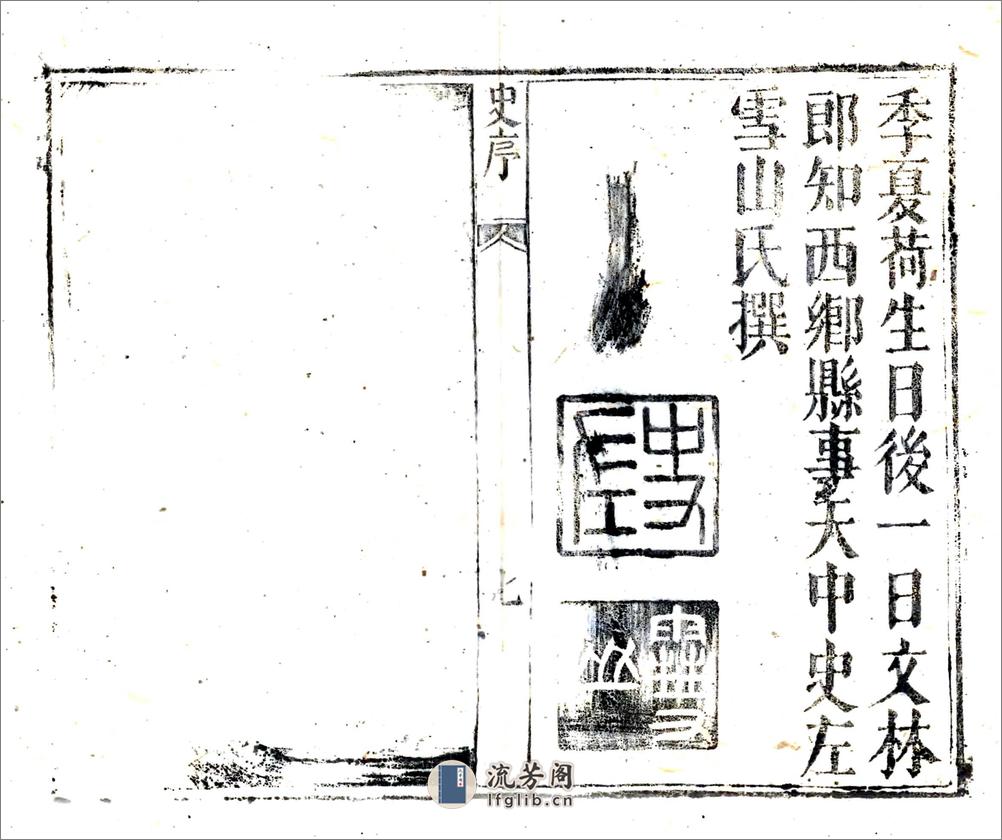 季夏荷生日後一日文林
郎知西鄉縣事天中史左
雪山氏撰
史左
雪山
史序
七
流芳阁
lfglib.cn